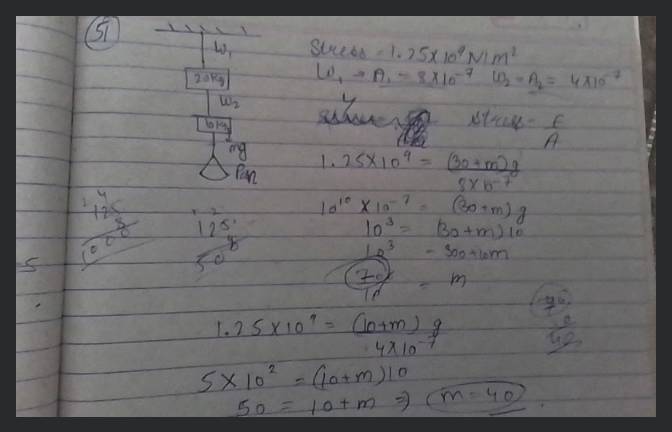 51
W1
20kg
W2
10kg
mg
Pan
Stress = 1.25×10⁹ N/m²
W1 → A1 = 8×10⁻⁷ W2 = A2 = 4×10⁻⁷
Stress = F/A
1.25×10⁹ = (30+m)g / 8×10⁻⁷
10¹⁰ × 10⁻⁷ = (30+m)g
10³ = (30+m)10
10³ = 300+10m
70 = m
125
8
1000
125
50
1.25×10⁹ = (10+m)g / 4×10⁻⁷
5×10² = (10+m)10
50 = 10+m ⇒ m=40